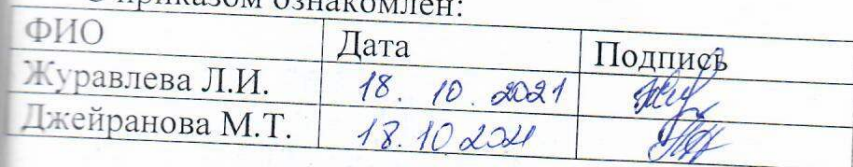 С приказом ознакомлен:
ФИО Дата Подпись
Журавлева Л.И. 18. 10. 2021
Джейранова М.Т. 18.10 2021